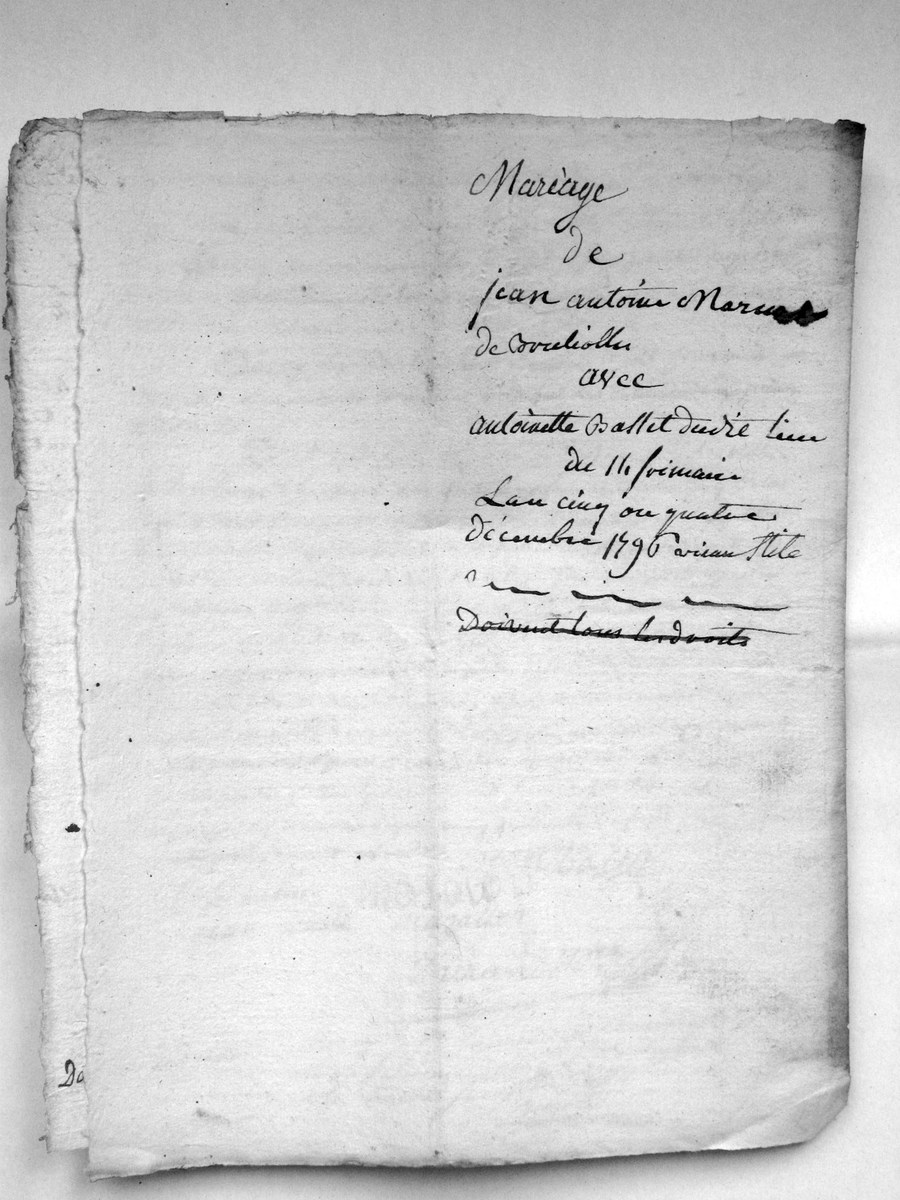 Mariage
de
jean antoine
de
avec
antoinette Basset dudit lieu
du 14 frimaire
Lan cinq ou quatre
décembre 1796 vieux Stile
Doivent tous les droits
Do